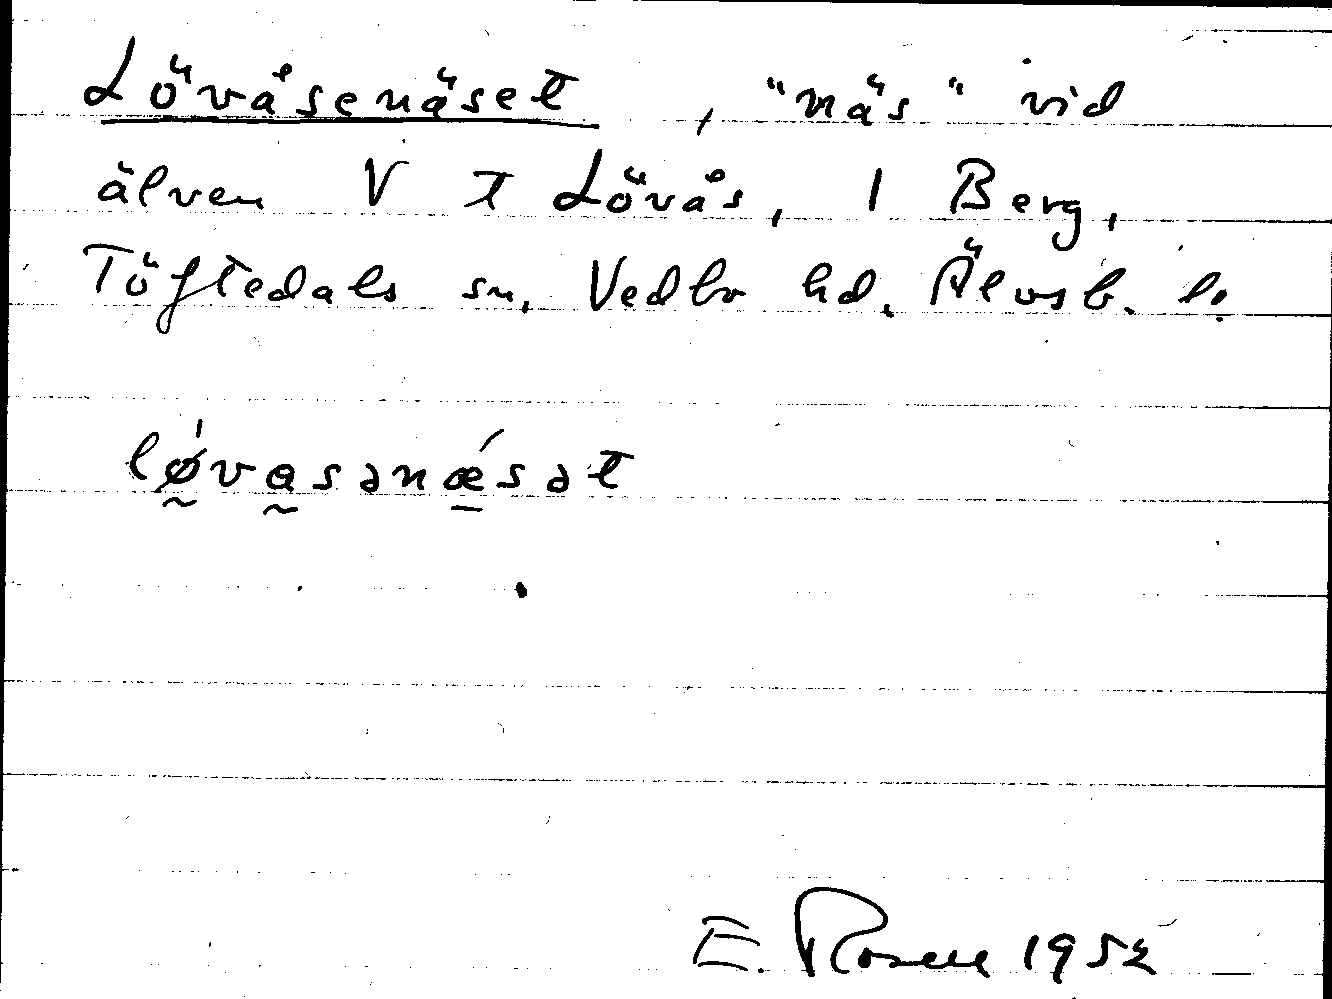 Lövåsenäset, "näs" vid
älven V t Lövås, 1 Berg,
Töftedals sn, Vedbo hd, Älvsb. l.
lǿ̰va̰sənǽ̱sət
E. Rosen 1952